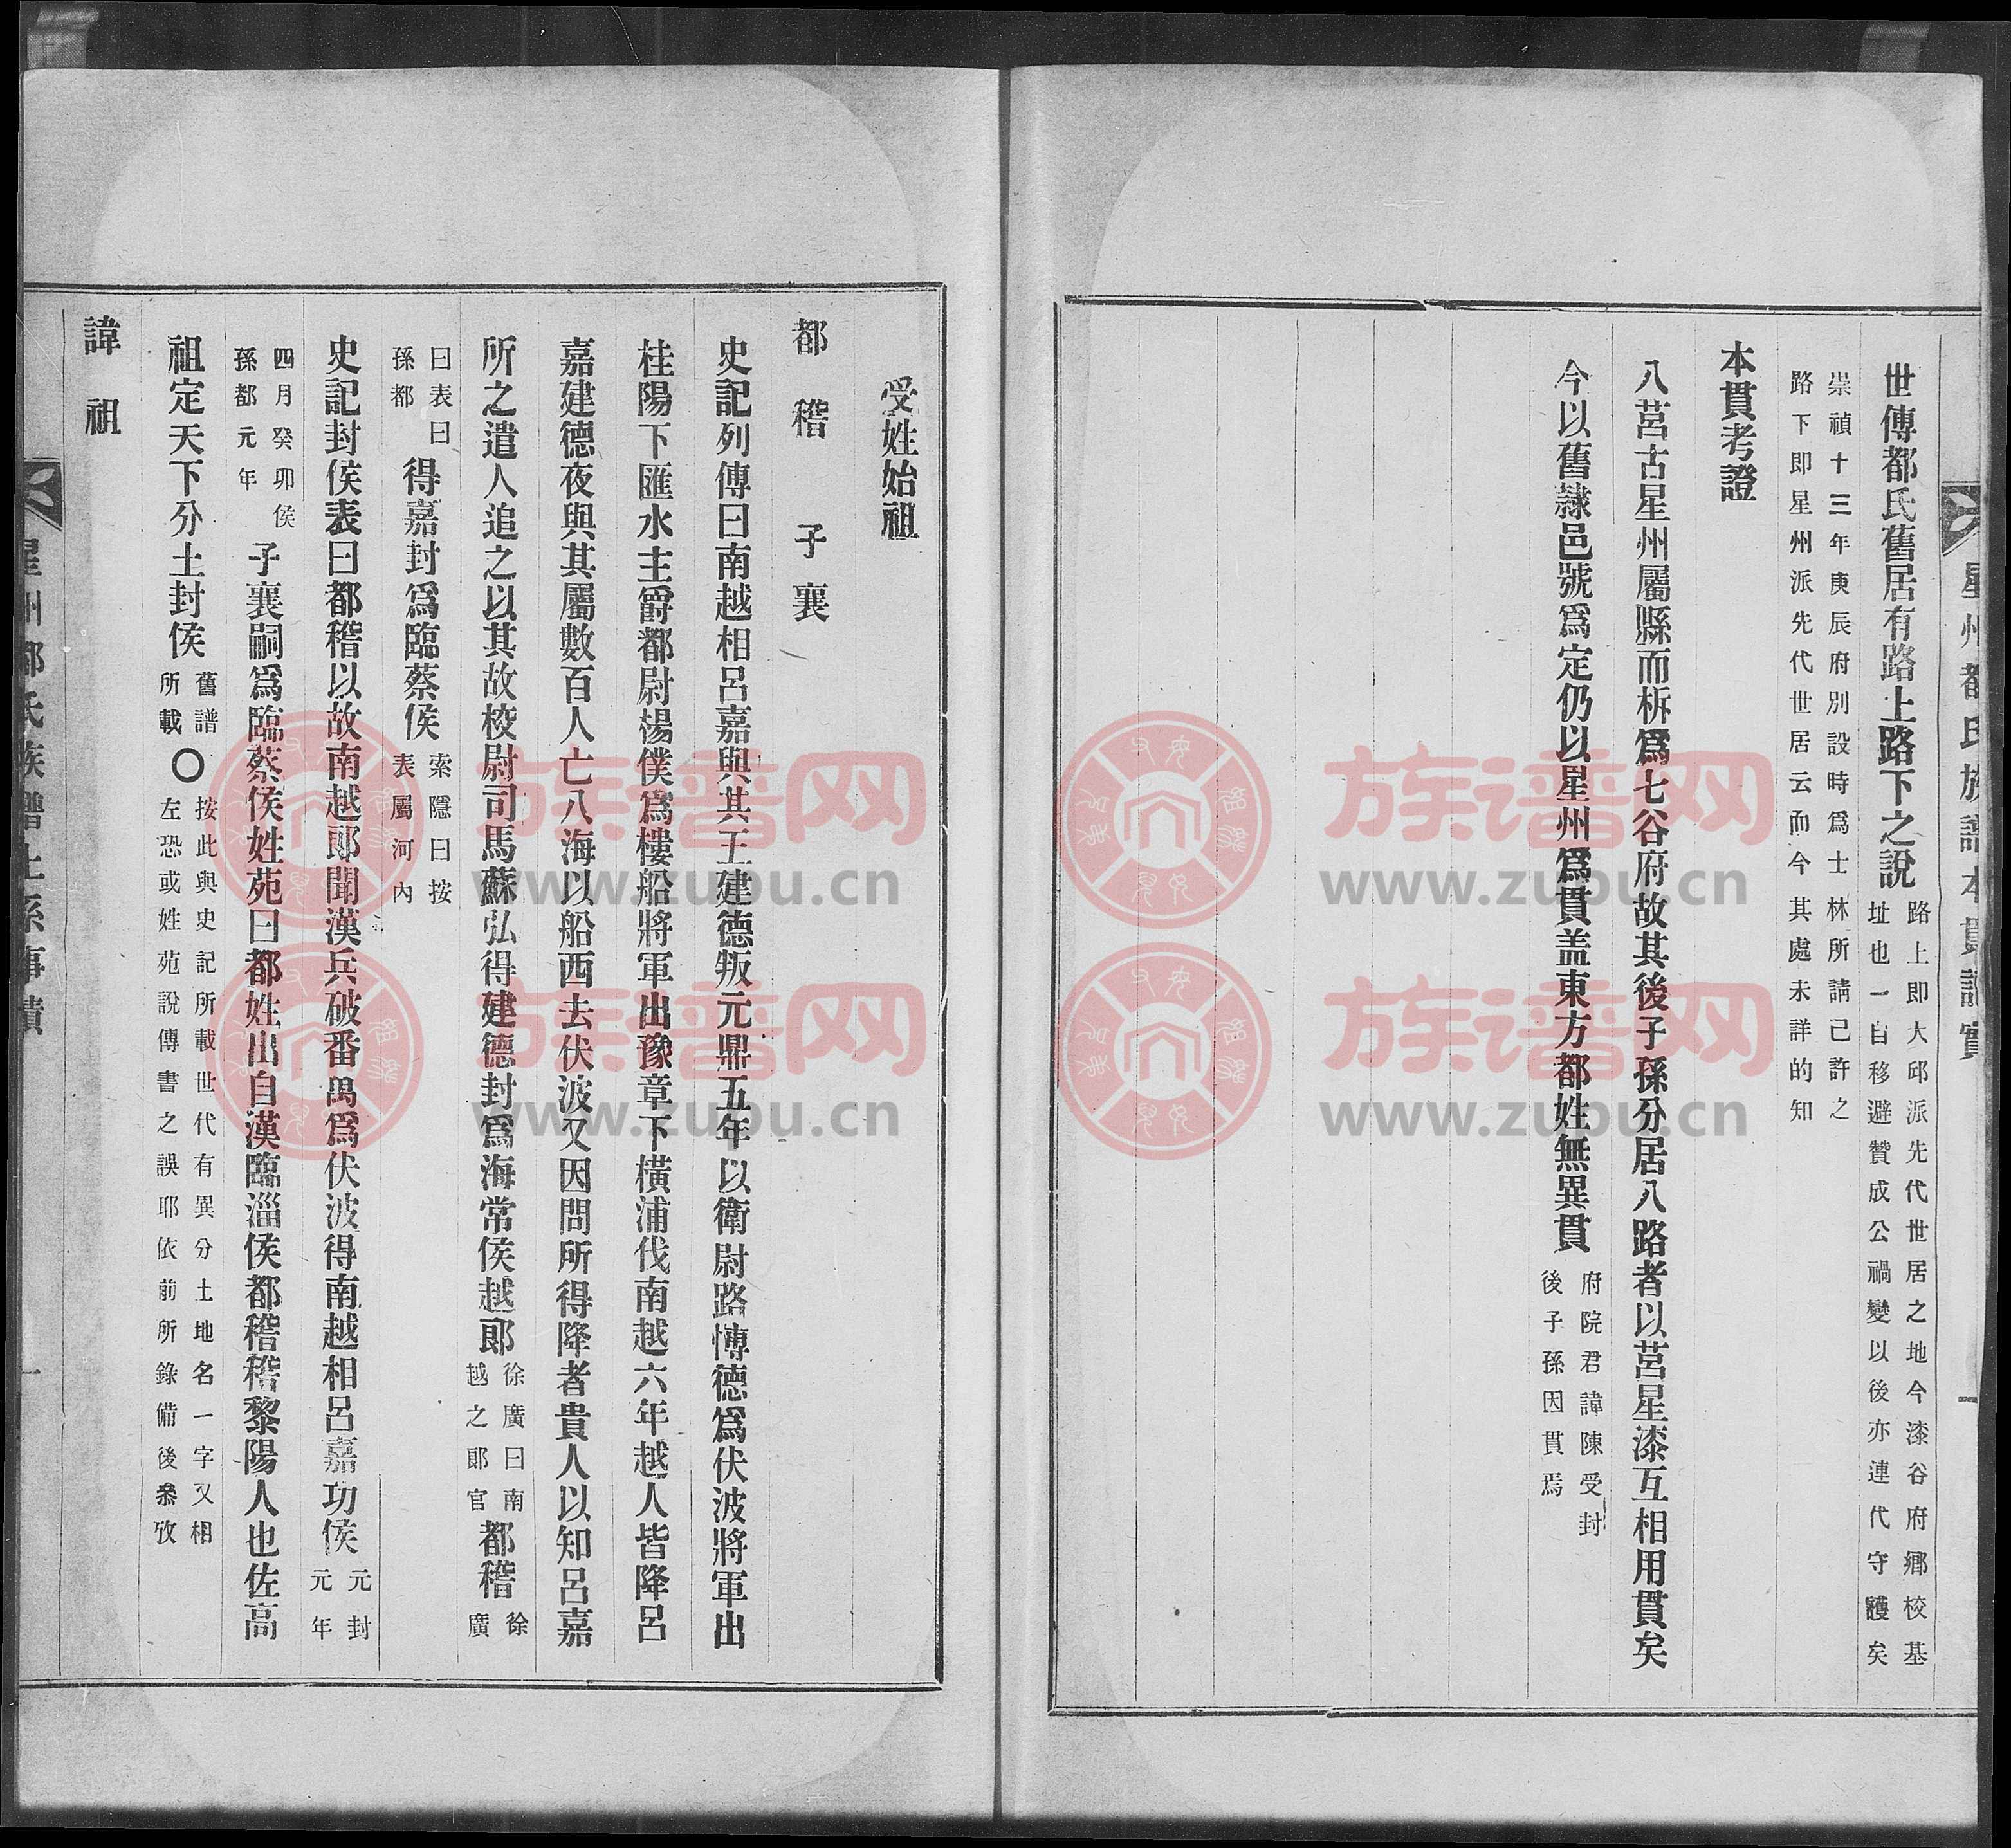 星州都氏族譜本貫記實
一
世傳都氏舊居有路上路下之說
路上即大邱派先代世居之地今漆谷府鄕校基
址也一自移避贊成公禍變以後亦連代守護矣
崇禎十三年庚辰府別設時爲士林所請已許之
路下即星州派先代世居云而今其處未詳的知
本貫考證
八莒古星州屬縣而柝爲七谷府故其後子孫分居八路者以莒星漆互相用貫矣
今以舊隷邑號爲定仍以星州爲貫盖東方都姓無異貫
府院君諱陳受封
後子孫因貫焉
受姓始祖
都稽 子襄
史記列傳曰南越相呂嘉與其王建德叛元鼎五年以衛尉路愽德爲伏波將軍出
桂陽下匯水主爵都尉楊僕爲樓船將軍出豫章下橫浦伐南越六年越人皆降呂
嘉建德夜與其屬數百人亡八海以船西去伏波又因問所得降者貴人以知呂嘉
所之遣人追之以其故校尉司馬蘇弘得建德封爲海常侯越郞
徐廣曰南
越之郞官
都稽
徐
廣
曰表曰
孫都
得嘉封爲臨蔡侯
索隱曰按
表屬河內
史記封侯表曰都稽以故南越郞聞漢兵破番禺爲伏波得南越相呂嘉功侯
元封
元年
四月癸卯侯
孫都元年
子襄嗣爲臨蔡侯姓苑曰都姓出自漢臨淄侯都稽稽黎陽人也佐高
祖定天下分土封侯
舊譜
所載
〇
按此與史記所載世代有異分土地名一字又相
左恐或姓苑說傳書之誤耶依前所錄備後叅攷
諱祖
星州都氏族譜上系事蹟
一
族谱网
www.zupu.cn
族谱网
www.zupu.cn
族谱网
www.zupu.cn
族谱网
www.zupu.cn